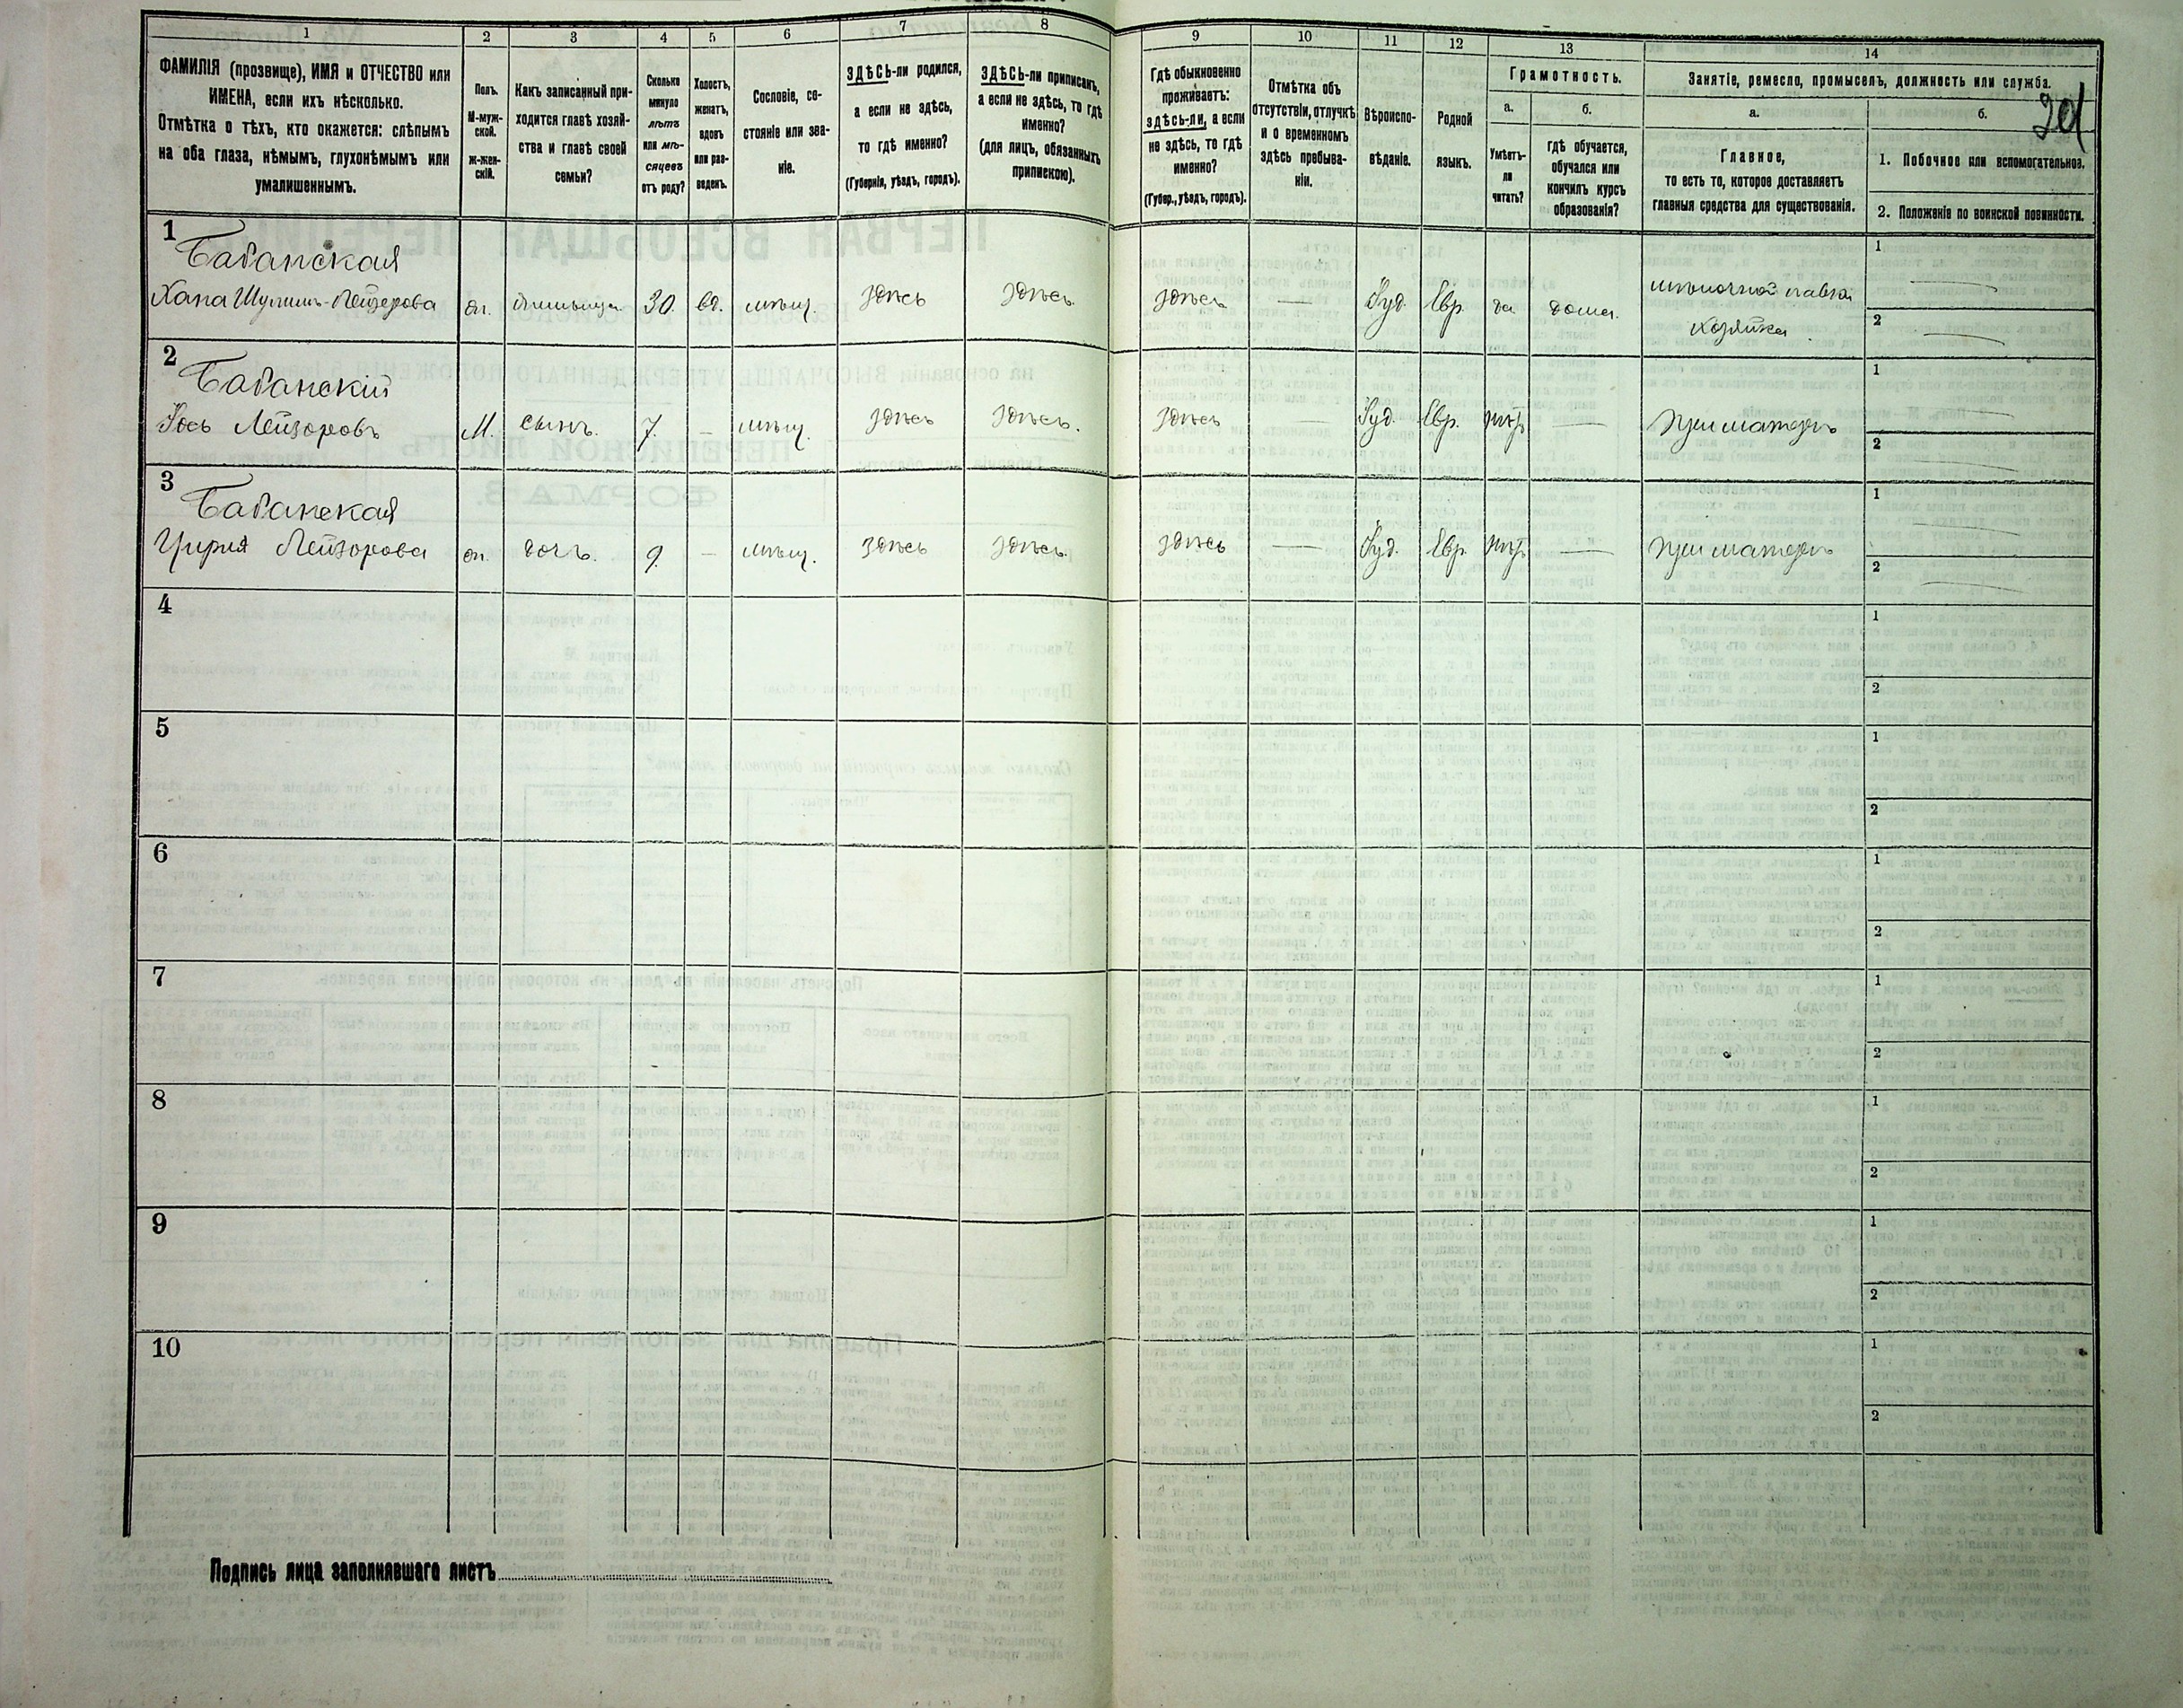 1 2 3 4 5 6 7 8 9 10 11 12 13 14
ФАМИЛІЯ (прозвище), ИМЯ и ОТЧЕСТВО или
ИМЕНА, если ихъ нѣсколько.
Отмѣтка о тѣхъ, кто окажется: слѣпымъ
на оба глаза, нѣмымъ, глухонѣмымъ или
умалишеннымъ.
Полъ.
М-муж-
ской.
ж-жен-
скій.
Какъ записанный при-
ходится главѣ хозяй-
ства и главѣ своей
семьи?
Сколько
минуло
лѣтъ
или мѣ-
сяцевъ
отъ роду?
Холостъ,
женатъ,
вдовъ
или раз-
веденъ.
Сословіе, со-
стояніе или зва-
ніе.
ЗДѢСЬ-ли родился,
а если не здѣсь,
то гдѣ именно?
(Губернія, уѣздъ, городъ).
ЗДѢСЬ-ли приписанъ,
а если не здѣсь, то гдѣ
именно?
(для лицъ, обязанныхъ
припискою).
Гдѣ обыкновенно
проживаетъ:
здѣсь-ли, а если
не здѣсь, то гдѣ
именно?
(Губер., уѣздъ, городъ).
Отмѣтка объ
отсутствіи, отлучкѣ
и о временномъ
здѣсь пребыва-
ніи.
Вѣроиспо-
вѣданіе.
Родной
языкъ.
Грамотность.
а.
Умѣетъ-
ли
читать?
б.
гдѣ обучается,
обучался или
кончилъ курсъ
образованія?
Занятіе, ремесло, промыселъ, должность или служба.
а.
Главное,
то есть то, которое доставляетъ
главныя средства для существованія.
б.
1. Побочное или вспомогательное.
2. Положеніе по воинской повинности.
1
Бабанская
Хана Шулимъ-Лейзерова ж. 30. вд. мѣщ. здѣсь здѣсь здѣсь — Іуд. Евр. да дома.
хозяйка
1 —
2 —
2
Бабанскій
Лейзоровъ М. сынъ. 7. — мѣщ. здѣсь здѣсь. здѣсь — Іуд. Евр. нѣтъ — при матери
1 —
2 —
3
Бабанская
Лейзорова ж. дочь. 9. — мѣщ. здѣсь здѣсь. здѣсь — Іуд. Евр. нѣтъ — при матери
1 —
2 —
4 1
2
5 1
2
6 1
2
7 1
2
8 1
2
9 1
2
10 1
2
Подпись лица заполнявшаго листъ